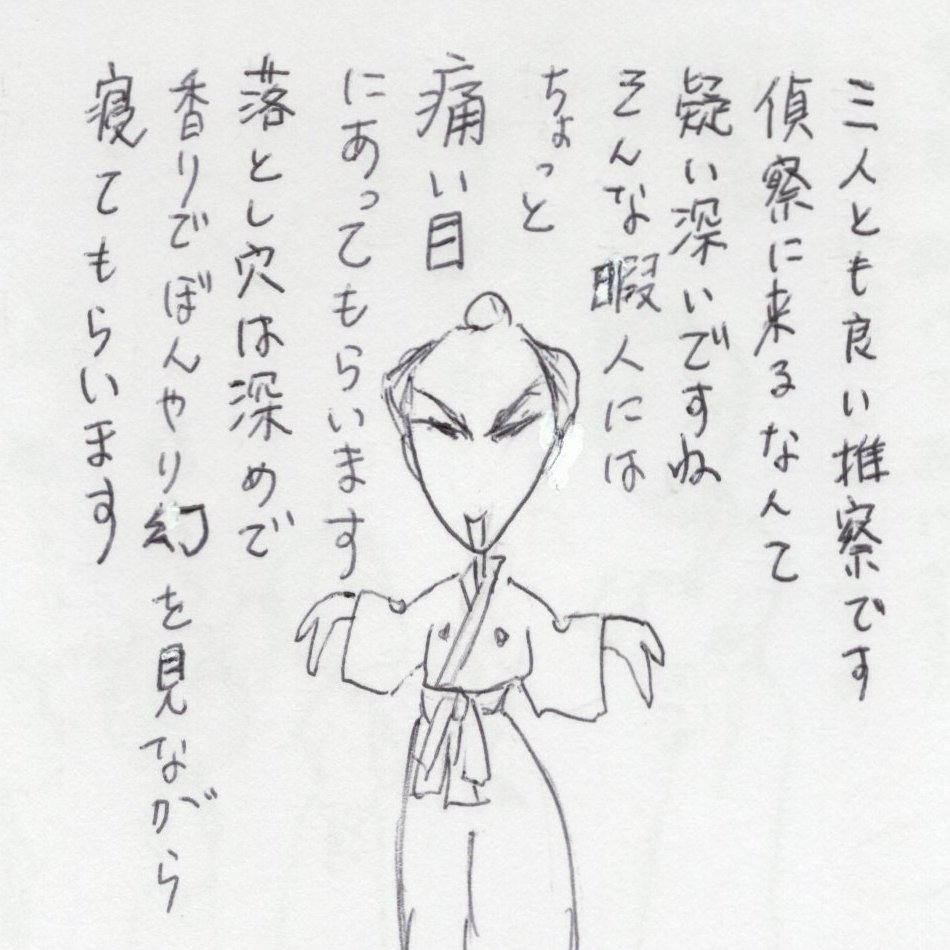 三人とも良い推察です
偵察に来るなんて
疑い深いですね
そんな暇人には
ちょっと
痛い目
にあってもらいます
落とし穴は深めで
香りでぼんやり幻を見ながら
寝てもらいます